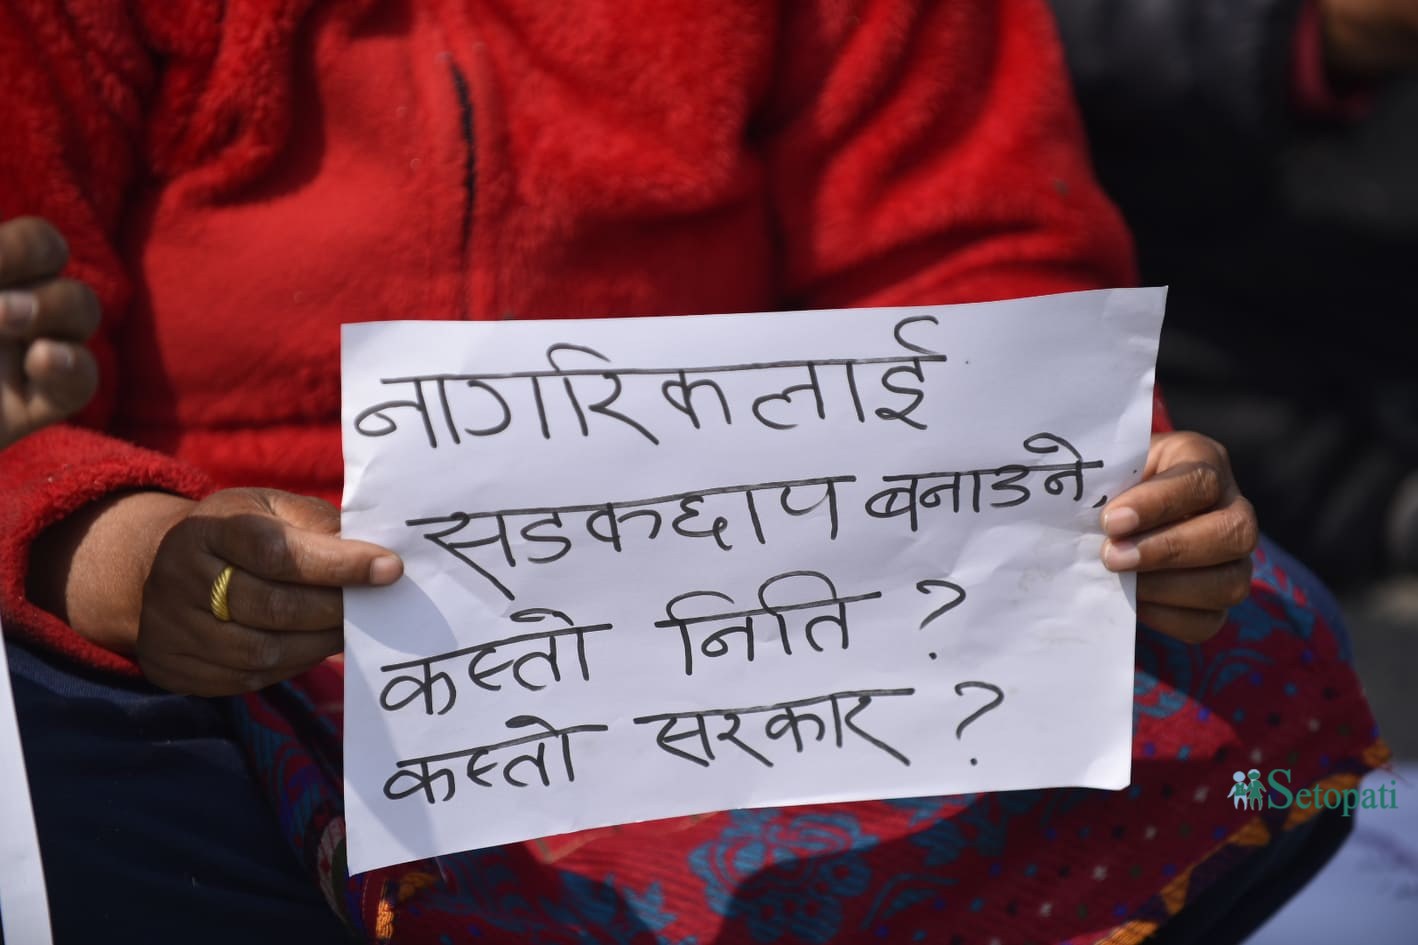 नागरिकलाई
सडकछाप बनाउने,
कस्तो निति ?
कस्तो सरकार ?
Setopati